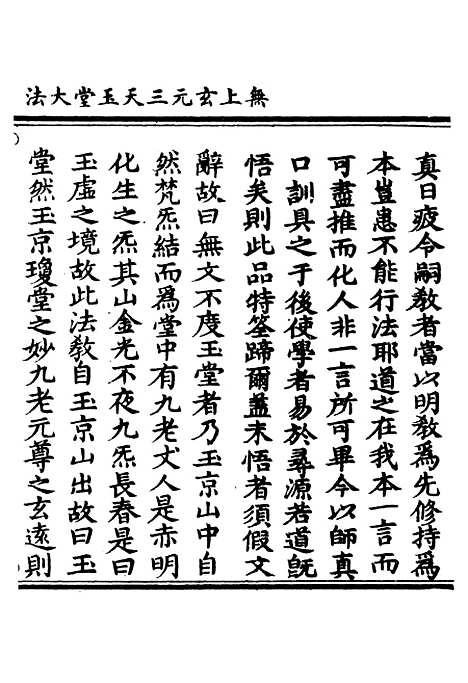 無上玄元三天玉堂大法
真日疲令嗣教者當以明教爲先修持爲
本豈患不能行法耶道之在我本一言而
可盡推而化人非一言所可畢今以師真
口訓具之于後使學者易於尋源若道旣
悟矣則此品特筌蹄爾蓋末悟者須假文
辭故曰無文不度玉堂者乃玉京山中自
然梵炁結而爲堂中有九老丈人是赤明
化生之炁其山金光不夜九炁長春是曰
玉虛之境故此法教自玉京山出故曰玉
堂然玉京瓊堂之妙九老元尊之玄遠則